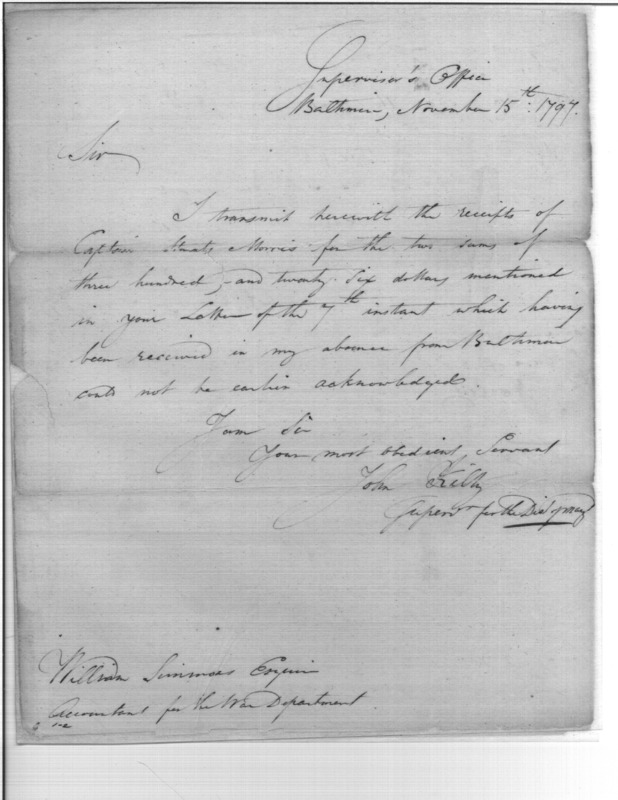 Supervisor's Office
Baltimore, November 15th. 1797.
Sir
I transmit herewith the receipts of
Captain Staats Morris for the two sums of
three hundred, and twenty six dollars mentioned
in your Letter of the 7th instant which having
been received in my absence from Baltimore
could not be earlier acknowledged.
I am Sir
Your most obedient Servant
John Kilty
Superv.r for the Dist of Mary
William Simmons Esquire
Accountant for the War Department.